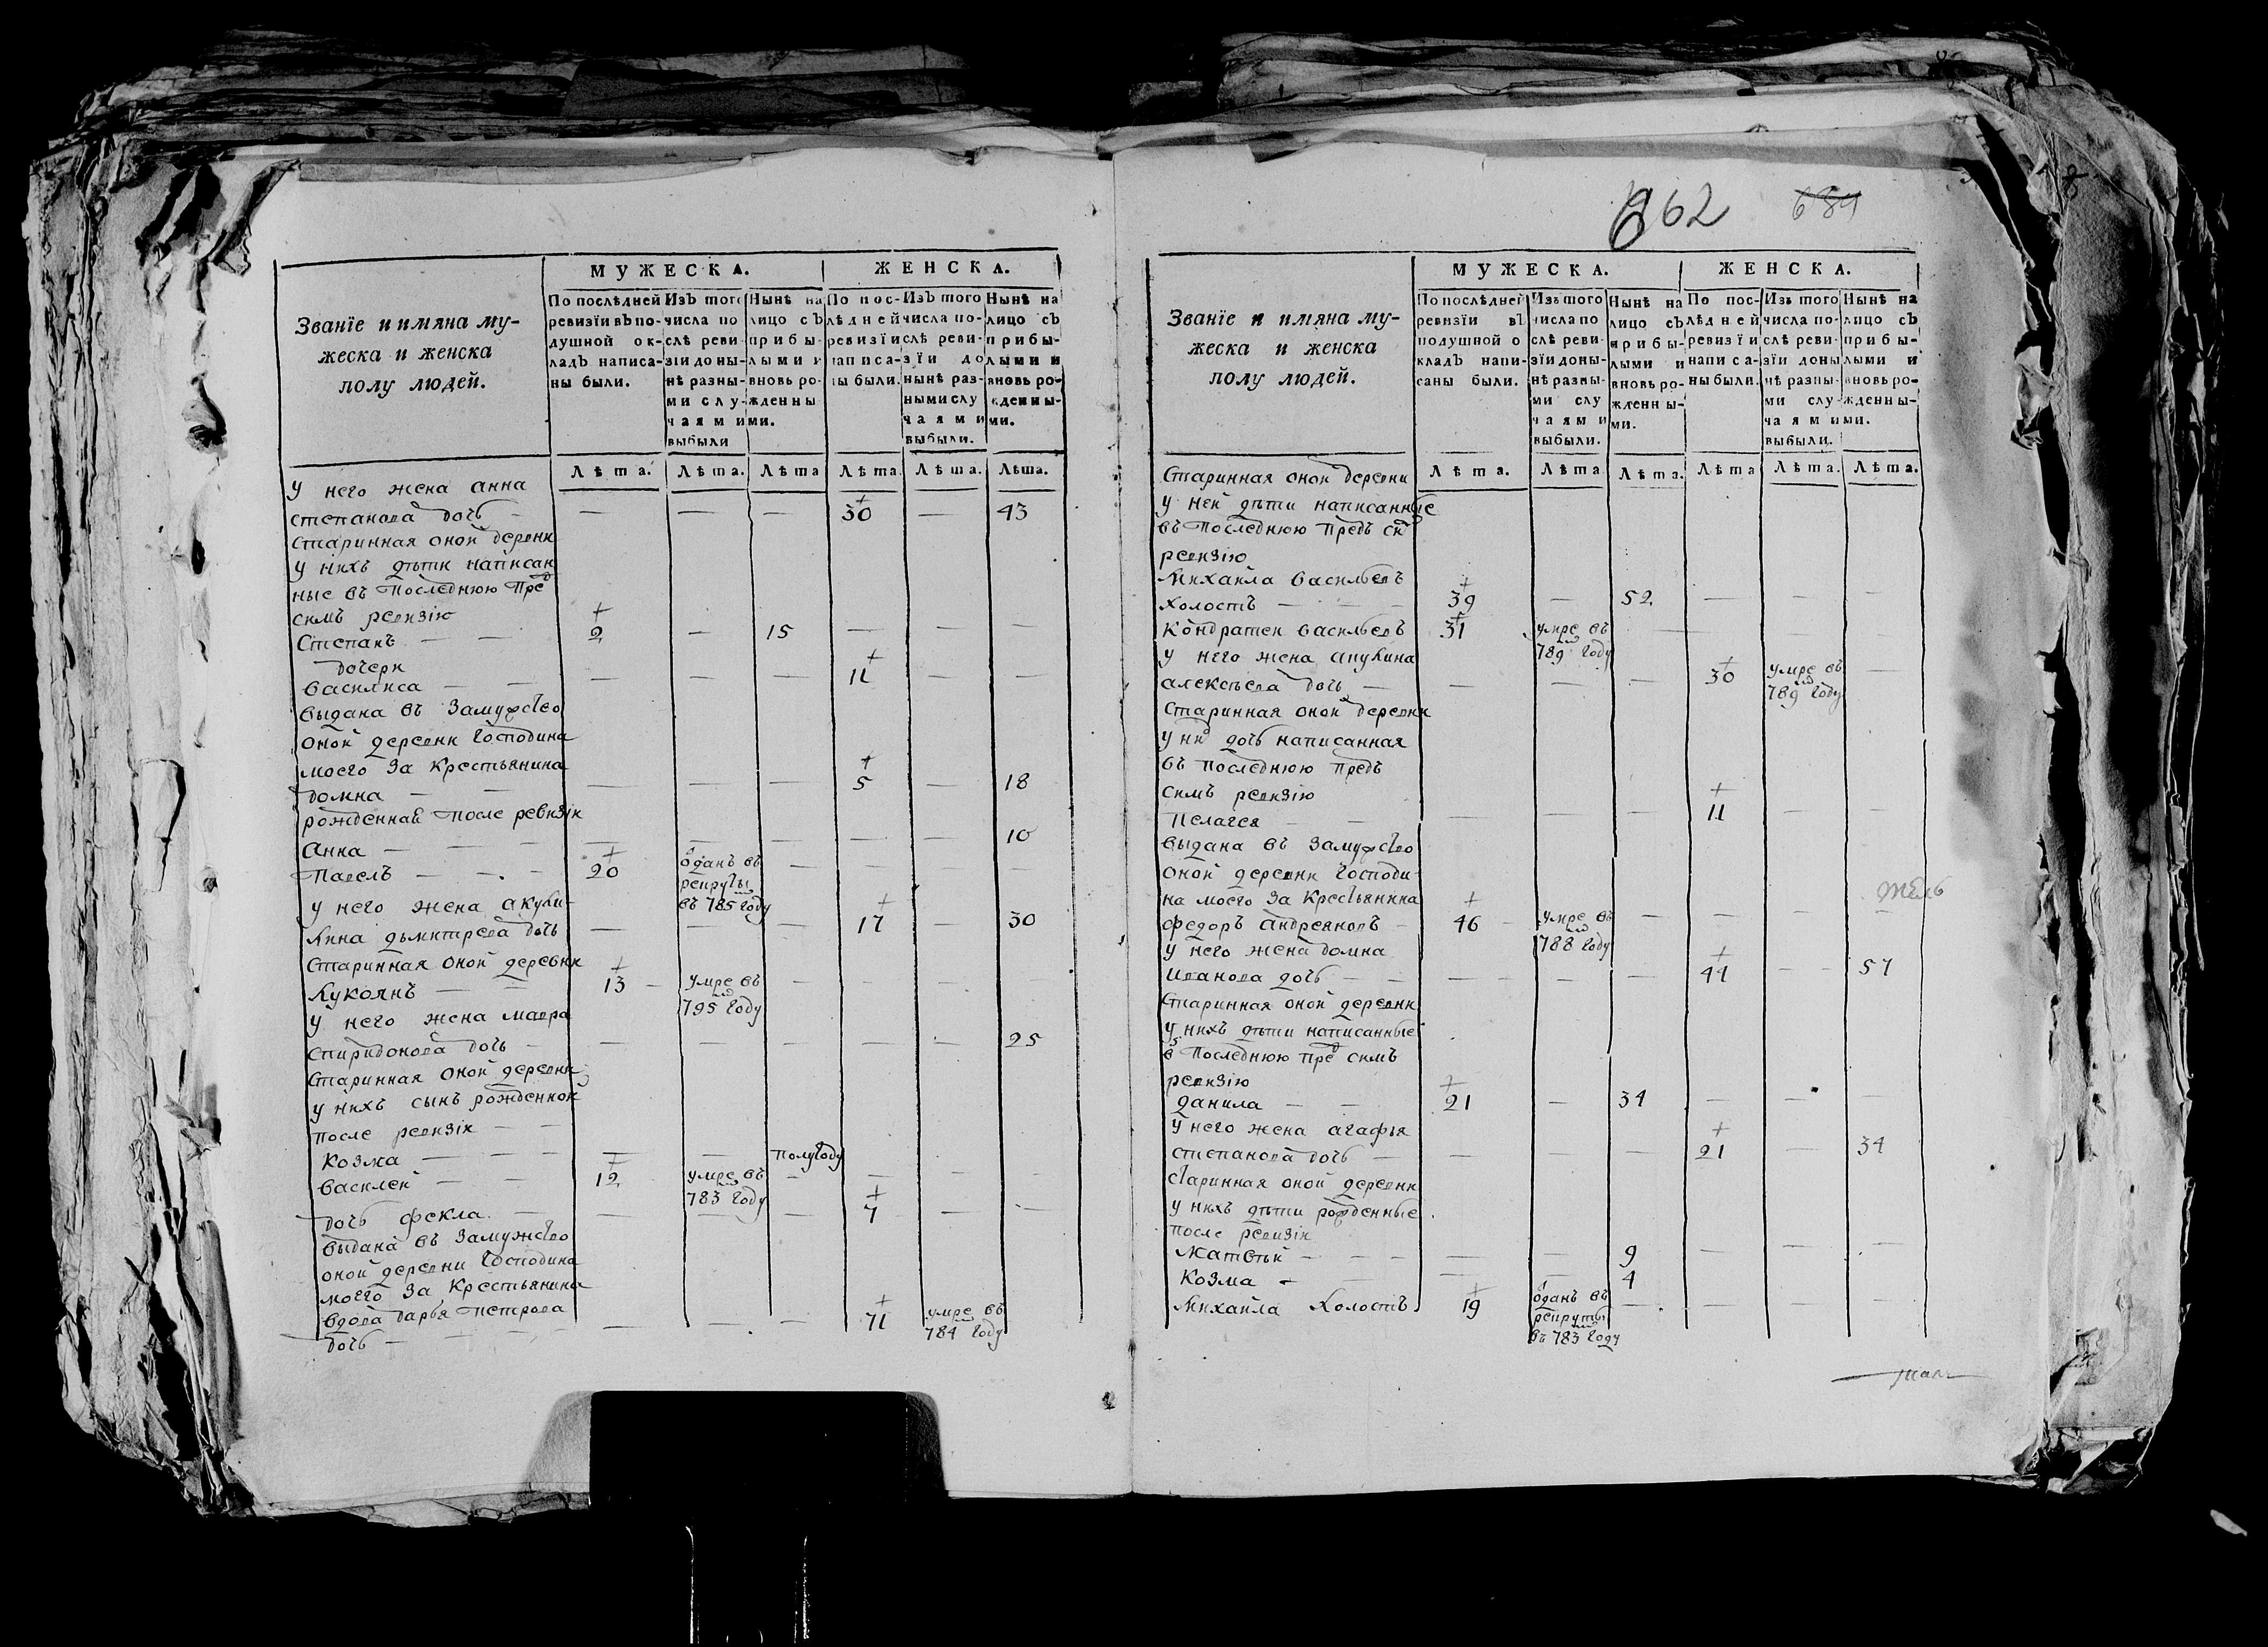 МУЖЕСКА. ЖЕНСКА.
Званїе и имяна му-
жеска и женска
полу людей.
По послѣдней
ревизїи въ по-
душной ок-
ладъ написа-
ны были.
Изъ того
числа по
слѣ реви-
зїи до ны-
нѣ разны-
ми слу-
чаями
выбыли
Нынѣ на
лицо съ
прибы-
лыми и
вновь ро-
жденны
ми.
По пос-
лѣдней
ревизїи
написа-
ны были.
Изъ того
числа по-
слѣ реви-
зїи до
нынѣ раз-
ными слу
чаями
выбыли.
Нынѣ на
лицо съ
прибы-
лыми и
вновь ро-
жденны-
ми.
Лѣта. Лѣта. Лѣта Лѣта. Лѣта. Лѣта.
У него жена анна
степанова дочь — — — — 30 — 43
старинная оной деревни
у нихъ дѣти написан
ные въ последнюю пред
симъ ревизію
Степанъ — — 2 — 15 — — —
дочери
василиса — — — — — 11 — —
выдана въ замужство
оной деревни господина
моего за крестьянина
домна — — — — — 5 — 18
рожденная после ревизіи
Анна — — — — — — — — 10
Павелъ — — 20 отданъ въ рекруты въ 785 году — — — —
у него жена акули-
лина дьмитрева дочь — — — 17 — 30
Старинная оной деревни
Лукоянъ — — 13 — умре въ 795 году — — — —
у него жена мавра
спиридонова дочь — — — — — — 25
Старинная оной деревни
у нихъ сынъ рожденной
после ревизіи — —
козма — — — — — полугоду
василей — — 12 умре въ 783 году — — —
дочь фекла — — — — 7 — —
выдана въ замужство
оной деревни господина
моего за крестьянина
вдова дарья петрова
дочь — — — — 71 умре въ 784 году
662 684
МУЖЕСКА. ЖЕНСКА.
Званїе и имяна му-
жеска и женска
полу людей.
По послѣдней
ревизїи въ
подушной о
кладъ напи-
саны были.
Изъ того
числа по
слѣ реви-
зїи доны-
нѣ разны-
ми слу
чаями
выбыли.
Нынѣ на
лицо съ
прибы-
лыми и
вновь ро-
жденны-
ми.
По пос-
лѣдней
ревизїи
написа-
ны были.
Изъ того
числа по-
слѣ реви-
зїи доны
нѣ разны-
ми слу-
чаями
выбыли.
Нынѣ на
лицо съ
прибы-
лыми и
вновь ро-
жденны-
ми.
Лѣта. Лѣта Лѣта. Лѣта Лѣта. Лѣта.
Старинная оной деревни
у ней дѣти написанные
въ последнюю предъ сей
ревизію
Михаила васильевъ
холостъ — — — 39 — 52 — — —
кондратеи васильевъ 31 умре въ 789 году —
у него жена акулина
алексѣева дочь — — — — 30 умре въ 789 году —
Старинная оной деревни
у них дочь написанная
въ последнюю предъ
симъ ревизію
Пелагея — — — — — 11 — —
выдана въ замужство
оной деревни господи-
на моего за крестьянина
федоръ андреяновъ — 46 умре въ 788 году — — — —
у него жена домна
Иванова дочь — — — — — 44 — 57
Старинная оной деревни
у нихъ дѣти написанные
в последнюю пред симъ
ревизію
данила — — 21 — 34 — — —
у него жена агафья
степанова дочь — — — — 21 — 34
старинная оной деревни
у нихъ дѣти рожденные
после ревизіи
Матвѣй — — — — — 9 — — —
козма — — — 4
Михаила холостъ 19 отданъ въ рекруты въ 783 году — — — —